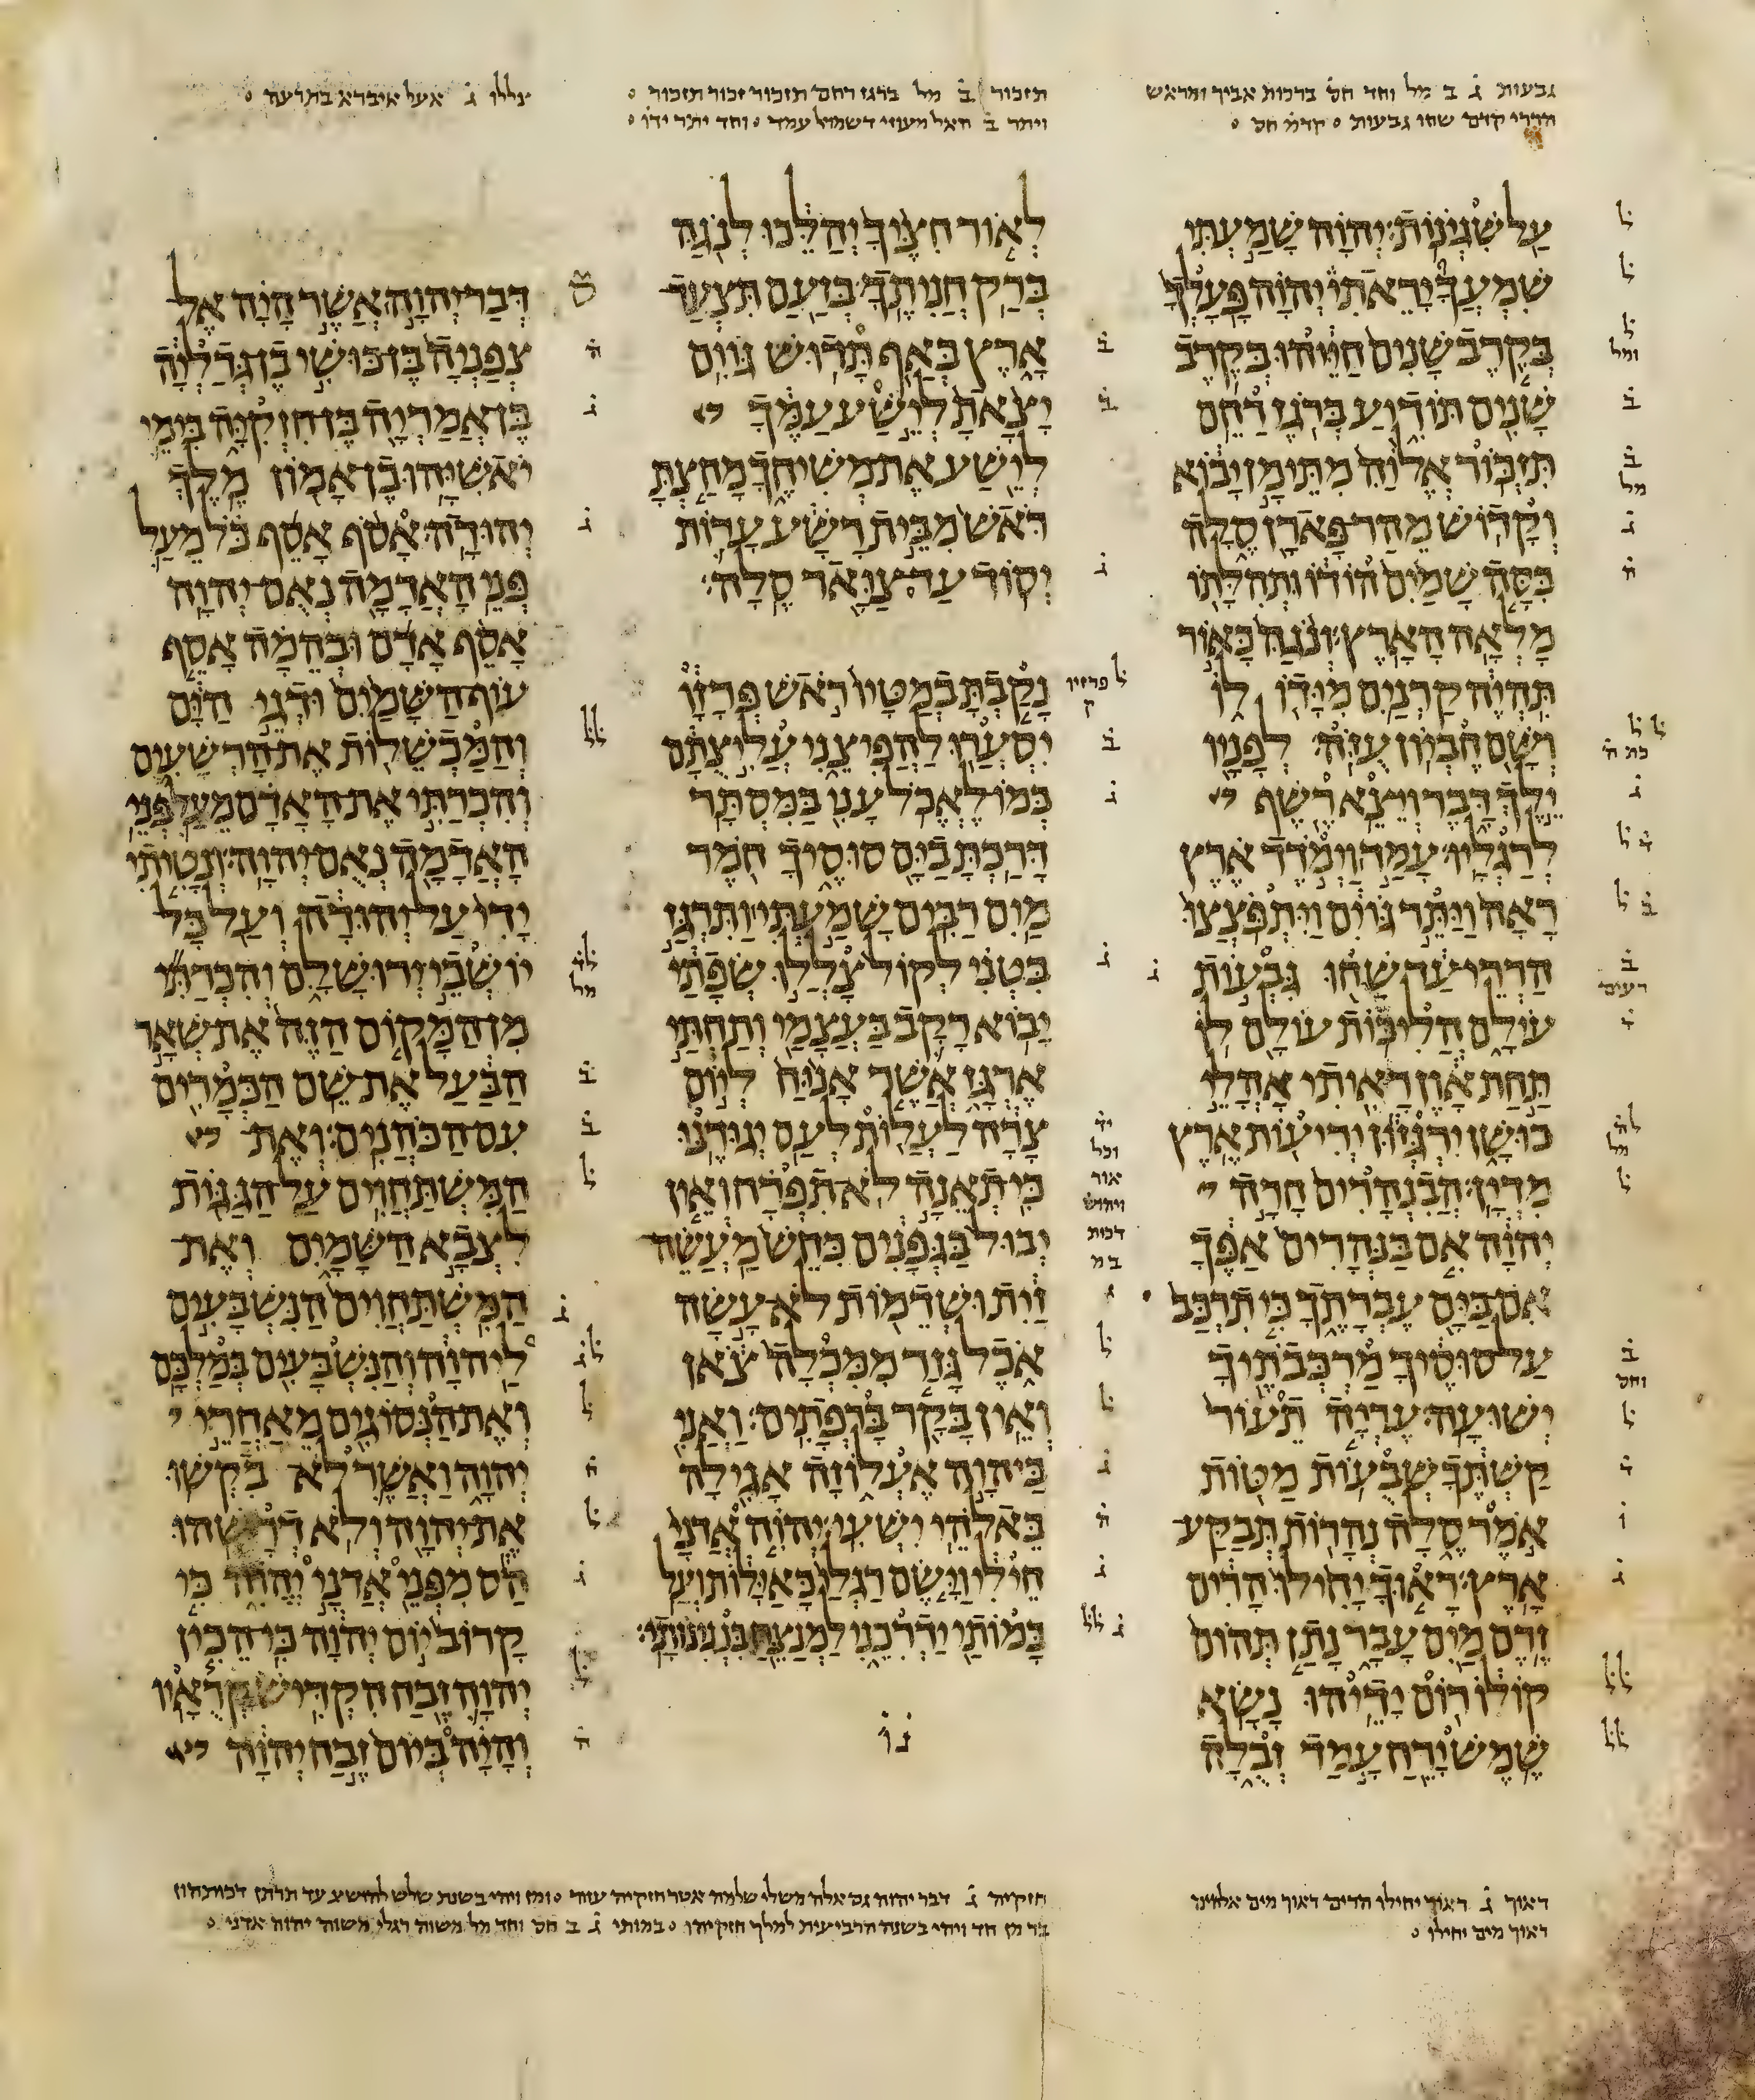 גבעות ג ב מל וחד חס ברכות אביך ומראש
הררי קדם שחו גבעות ׃ קדמ חס
תזכור ב מל ברגז רחם תזכור זכור תזכור
ויתר ב חאל מעוזי דשמואל עמד וחד יתר ידו
צללו ג אעל איברא בתרעה
עַל שִׁגְיֹנוֹת׃ יְהוָה שָׁמַעְתִּי
שִׁמְעֲךָ יָרֵאתִי יְהוָה פָּעָלְךָ
בְּקֶרֶב שָׁנִים חַיֵּיהוּ בְּקֶרֶב
שָׁנִים תּוֹדִיעַ בְּרֹגֶז רַחֵם
תִּזְכּוֹר׃ אֱלוֹהַּ מִתֵּימָן יָבוֹא
וְקָדוֹשׁ מֵהַר פָּארָן סֶלָה
כִּסָּה שָׁמַיִם הוֹדוֹ וּתְהִלָּתוֹ
מָלְאָה הָאָרֶץ׃ וְנֹגַהּ כָּאוֹר
תִּהְיֶה קַרְנַיִם מִיָּדוֹ לוֹ
וְשָׁם חֶבְיוֹן עֻזֹּה׃ לְפָנָיו
יֵלֶךְ דָּבֶר וְיֵצֵא רֶשֶׁף
לְרַגְלָיו׃ עָמַד וַיְמֹדֶד אֶרֶץ
רָאָה וַיַּתֵּר גּוֹיִם וַיִּתְפֹּצְצוּ
הַרְרֵי עַד שַׁחוּ גִּבְעוֹת
עוֹלָם הֲלִיכוֹת עוֹלָם לוֹ׃
תַּחַת אָוֶן רָאִיתִי אָהֳלֵי
כוּשָׁן יִרְגְּזוּן יְרִיעוֹת אֶרֶץ
מִדְיָן׃ הֲבִנְהָרִים חָרָה
יְהוָה אִם בַּנְּהָרִים אַפֶּךָ
אִם בַּיָּם עֶבְרָתֶךָ כִּי תִרְכַּב
עַל סוּסֶיךָ מַרְכְּבֹתֶיךָ
יְשׁוּעָה׃ עֶרְיָה תֵעוֹר
קַשְׁתֶּךָ שְׁבֻעוֹת מַטּוֹת
אֹמֶר סֶלָה נְהָרוֹת תְּבַקַּע
אָרֶץ׃ רָאוּךָ יָחִילוּ הָרִים
זֶרֶם מַיִם עָבָר נָתַן תְּהוֹם
קוֹלוֹ רוֹם יָדֵיהוּ נָשָׂא׃
שֶׁמֶשׁ יָרֵחַ עָמַד זְבֻלָה
לְאוֹר חִצֶּיךָ יְהַלֵּכוּ לְנֹגַהּ
בְּרַק חֲנִיתֶךָ׃ בְּזַעַם תִּצְעַד
אָרֶץ בְּאַף תָּדוּשׁ גּוֹיִם׃
יָצָאתָ לְיֵשַׁע עַמֶּךָ
לְיֵשַׁע אֶת מְשִׁיחֶךָ מָחַצְתָּ
רֹּאשׁ מִבֵּית רָשָׁע עָרוֹת
יְסוֹד עַד צַוָּאר סֶלָה׃
נָקַבְתָּ בְמַטָּיו רֹאשׁ פְּרָזָו
יִסְעֲרוּ לַהֲפִיצֵנִי עֲלִיצֻתָם
כְּמוֹ לֶאֱכֹל עָנִי בַּמִּסְתָּר׃
דָּרַכְתָּ בַיָּם סוּסֶיךָ חֹמֶר
מַיִם רַבִּים׃ שָׁמַעְתִּי וַתִּרְגַּז
בִּטְנִי לְקוֹל צָלֲלוּ שְׂפָתַי
יָבוֹא רָקָב בַּעֲצָמַי וְתַחְתַּי
אֶרְגָּז אֲשֶׁר אָנוּחַ לְיוֹם
צָרָה לַעֲלוֹת לְעַם יְגוּדֶנּוּ׃
כִּי תְאֵנָה לֹא תִפְרָח וְאֵין
יְבוּל בַּגְּפָנִים כִּחֵשׁ מַעֲשֵׂה
זַיִת וּשְׁדֵמוֹת לֹא עָשָׂה
אֹכֶל גָּזַר מִמִּכְלָה צֹאן
וְאֵין בָּקָר בָּרְפָתִים׃ וַאֲנִי
בַּיהוָה אֶעְלוֹזָה אָגִילָה
בֵּאלֹהֵי יִשְׁעִי׃ יְהוִה אֲדֹנָי
חֵילִי וַיָּשֶׂם רַגְלַי כָּאַיָּלוֹת וְעַל
בָּמוֹתַי יַדְרִכֵנִי לַמְנַצֵּחַ בִּנְגִינוֹתָי׃
נו
דְּבַר יְהוָה אֲשֶׁר הָיָה אֶל
צְפַנְיָה בֶּן כּוּשִׁי בֶן גְּדַלְיָה
בֶּן אֲמַרְיָה בֶּן חִזְקִיָּה בִּימֵי
יֹאשִׁיָּהוּ בֶן אָמוֹן מֶלֶךְ
יְהוּדָה׃ אָסֹף אָסֵף כֹּל מֵעַל
פְּנֵי הָאֲדָמָה נְאֻם יְהוָה׃
אָסֵף אָדָם וּבְהֵמָה אָסֵף
עוֹף הַשָּׁמַיִם וּדְגֵי הַיָּם
וְהַמַּכְשֵׁלוֹת אֶת הָרְשָׁעִים
וְהִכְרַתִּי אֶת הָאָדָם מֵעַל פְּנֵי
הָאֲדָמָה נְאֻם יְהוָה׃ וְנָטִיתִי
יָדִי עַל יְהוּדָה וְעַל כָּל
יוֹשְׁבֵי יְרוּשָׁלִָם וְהִכְרַתִּי
מִן הַמָּקוֹם הַזֶּה אֶת שְׁאָר
הַבַּעַל אֶת שֵׁם הַכְּמָרִים
עִם הַכֹּהֲנִים׃ וְאֶת
הַמִּשְׁתַּחֲוִים עַל הַגַּגּוֹת
לִצְבָא הַשָּׁמָיִם וְאֶת
הַמִּשְׁתַּחֲוִים הַנִּשְׁבָּעִים
לַיהוָה וְהַנִּשְׁבָּעִים בְּמַלְכָּם׃
וְאֶת הַנְּסוֹגִים מֵאַחֲרֵי
יְהוָה וַאֲשֶׁר לֹא בִקְשׁוּ
אֶת יְהוָה וְלֹא דְרָשֻׁהוּ׃
הַס מִפְּנֵי אֲדֹנָי יְהוִה כִּי
קָרוֹב יוֹם יְהוָה כִּי הֵכִין
יְהוָה זֶבַח הִקְדִּישׁ קְרֻאָיו׃
וְהָיָה בְּיוֹם זֶבַח יְהוָה
ראוך ג ראוך יחילו הרים ראוך מים אלהים
ראוך מים יחילו
חזקיה ג דבר יהוה גם אלה משלי שלמה אשר חזקיה עזיה ומן ויהי בשנת שלש להושע עד תרתן דכותהון
בר מן חד ויהי בשנה הרביעית למלך חזקיהו במותי ג ב חס וחד מל משוה רגלי משוה יהוה אדני